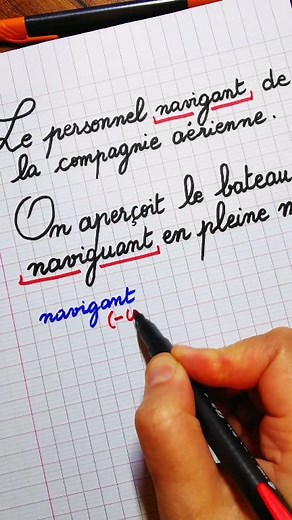 Le personnel navigant de
la compagnie aérienne.
On aperçoit le bateau
naviguant en pleine
navigant
(-